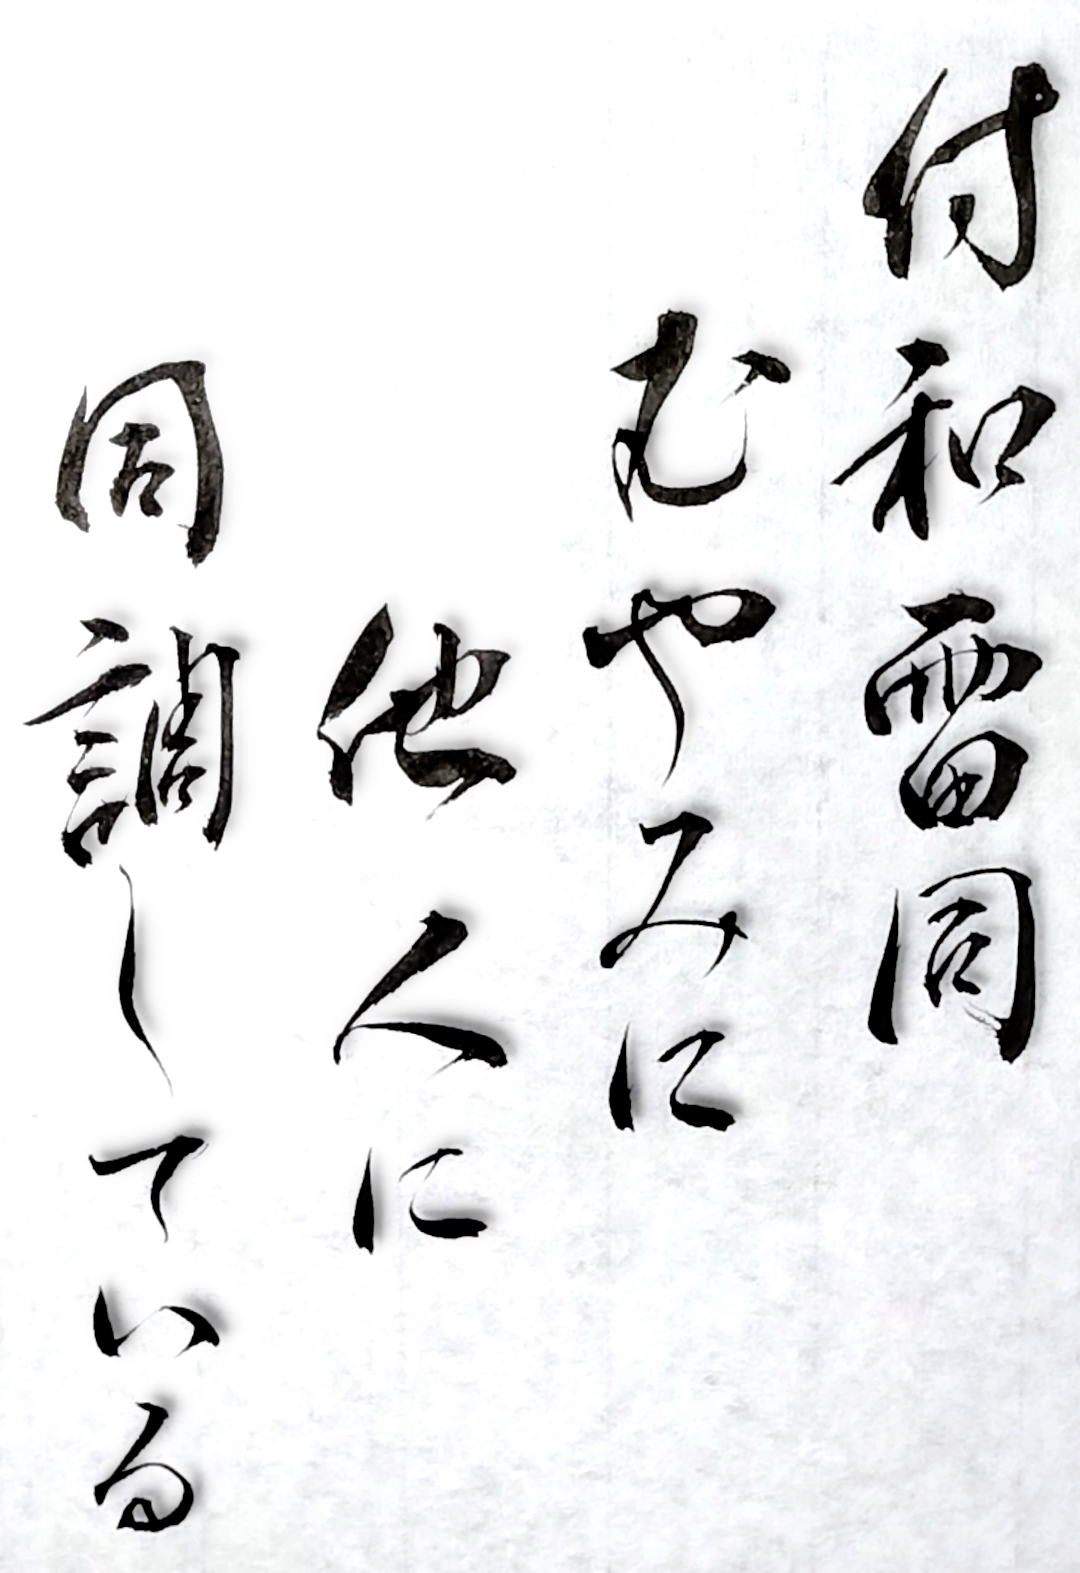 付和雷同
むやみに
他人に
同調している